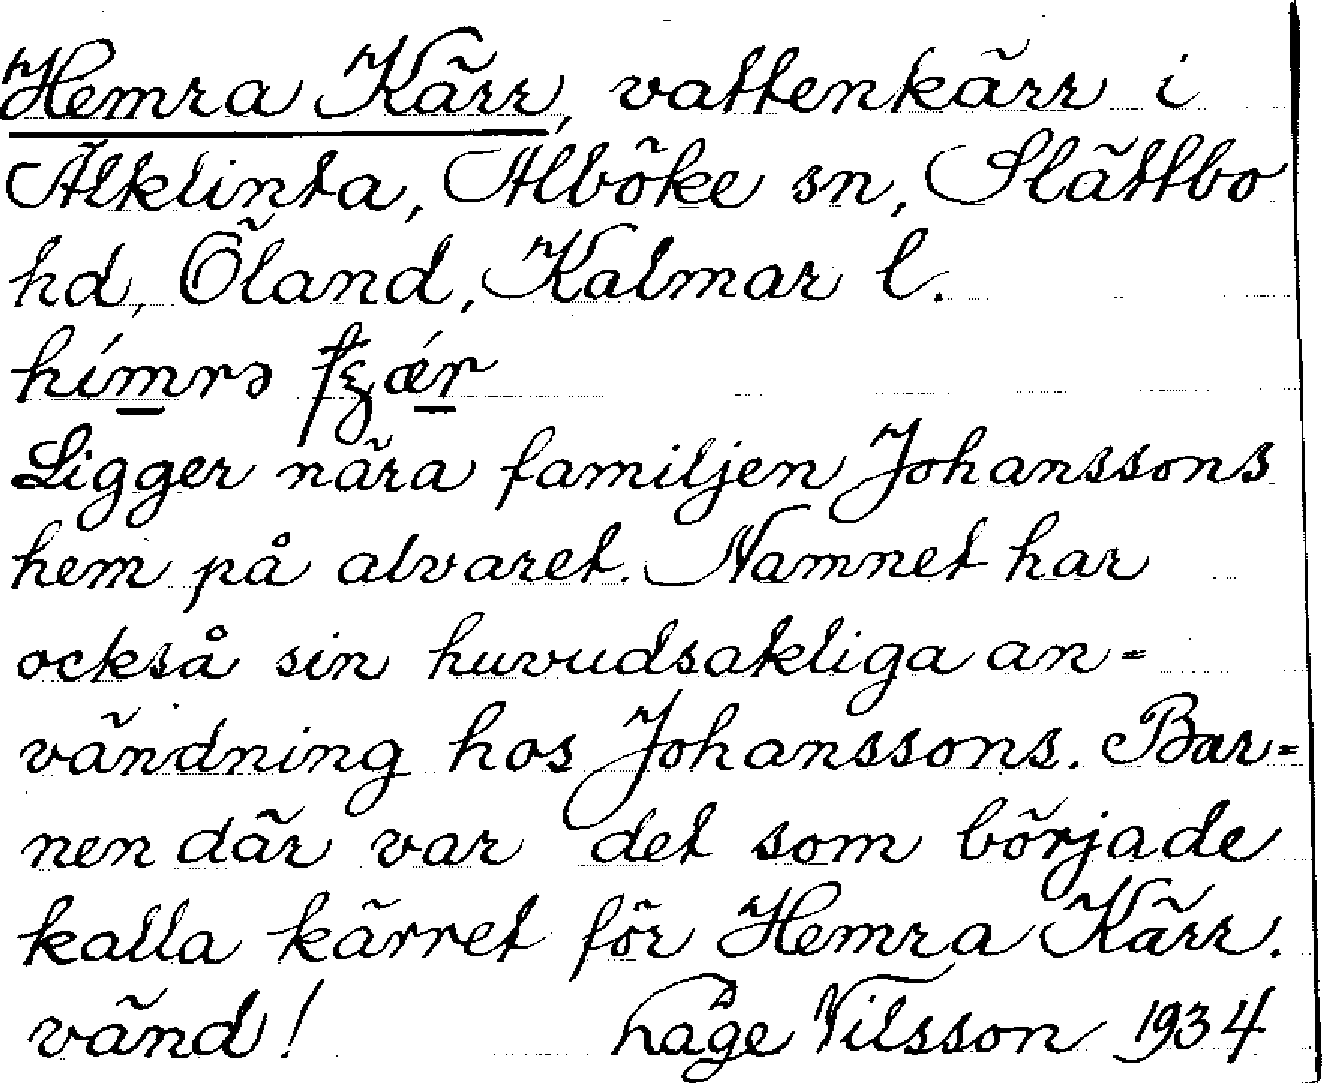 Hemra Kärr, vattenkärr i
Älklinta, Alböke sn, Slättbo
hd, Öland, Kalmar l.
hímrə
Ligger nära familjen Johanssons
hem på alvaret. Namnet har
också sin huvudsakliga an=
vändning hos Johanssons. Bar=
nen där var det som började
kalla kärret för Hemra Kärr.
vänd! Nilsson 1934